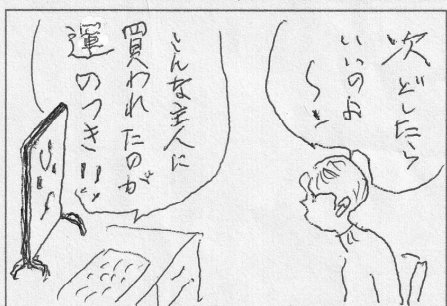 次どしたら
いいのよ
〜!!
こんな主人に
買われたのが
運のつき!!